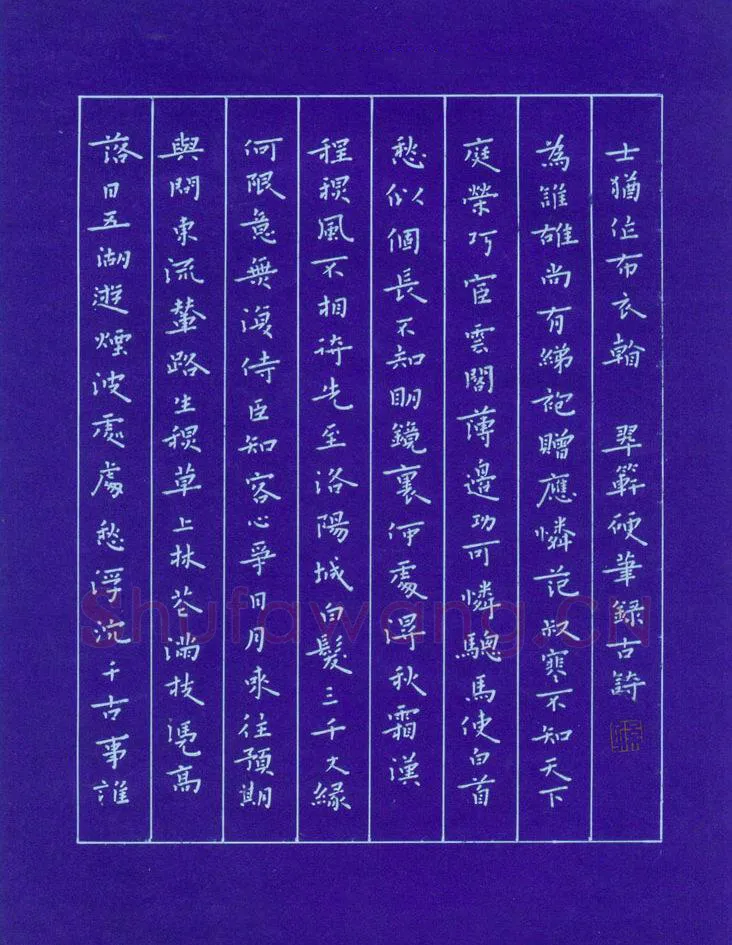 落日五湖遊煙波處處愁浮沉千古事誰
與問東流輦路生秋草上林花滿枝憑高
何限意無復侍臣知客心爭日月來往預期
程秋風不相待先至洛陽城白髮三千丈緣
愁似個長不知明鏡裏何處得秋霜漢
庭榮巧宦雲閣薄邊功可憐驄馬使白首
為誰雄尚有綈袍贈應憐范叔寒不知天下
士猶作布衣看 硬筆録古詩
Shufawang.CN